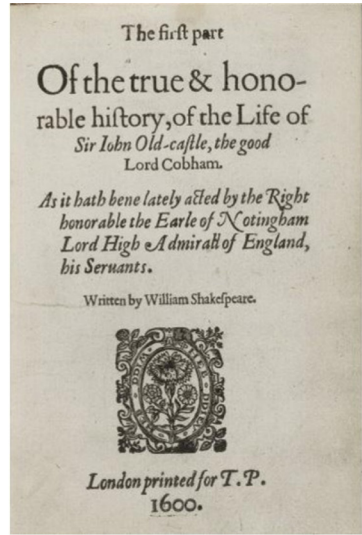 The firſt part
Of the true & hono-
rable hiſtory, of the Life of
Sir Iohn Old-caſtle, the good
Lord Cobham.
As it hath bene lately acted by the Right
honorable the Earle of Notingham
Lord High Admirall of England,
his Seruants.
Written by William Shakeſpeare.
London printed for T. P.
1600.